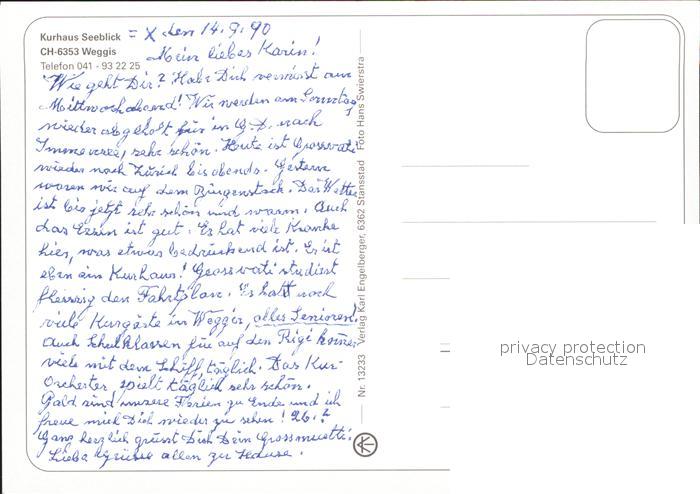 Kurhaus Seeblick = X den 14.9.90
CH-6353 Weggis
Telefon 041 - 93 22 25
Mein liebes Karin!
Wie geht Dir? Habe Dich vermisst am
Mittwochabend! Wir werden am Sonntag
wieder abgeholt für in G.D. nach
Immensee, sehr schön. Heute ist Grossvati
wieder nach Zürich bis abends. Gestern
waren wir auf dem Bürgenstock. Das Wetter
ist bis jetzt sehr schön und warm. Auch
das Essen ist gut. Es hat viele Kranke
hier, was etwas bedrückend ist. Es ist
eben ein Kurhaus! Grossvati studiert
fleissig den Fahrtplan. Es hatt noch
viele Kurgäste in Weggis, alles Senioren!
Auch Schulklassen für auf den Rigi
viele mit dem Schiff, täglich. Das Kur-
Orchester spielt täglich sehr schön.
Bald sind unsere Ferien zu Ende und ich
freue mich Dich wieder zu sehen!
Ganz herzlich grüsst Dich Dein Grossmuetti.
Liebe Grüsse allen zu Hause.
Nr. 13233 Verlag Karl Engelberger, 6362 Stansstad Foto Hans Swierstra
privacy protection
Datenschutz